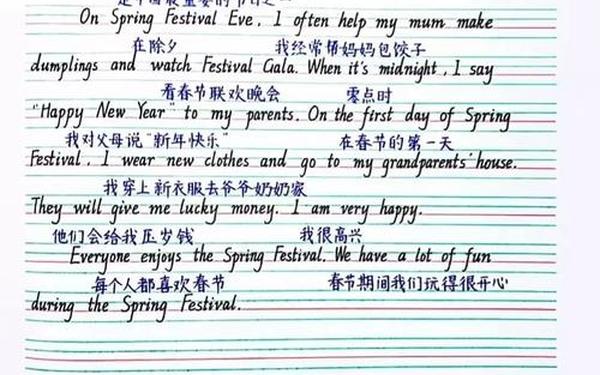 是中国最重要的节日之一
On Spring Festival Eve, I often help my mum make
在除夕 我经常帮妈妈包饺子
dumplings and watch Festival Gala. When it's midnight, I say
看春节联欢晚会 零点时
"Happy New Year" to my parents. On the first day of Spring
我对父母说"新年快乐" 在春节的第一天
Festival, I wear new clothes and go to my grandparents' house.
我穿上新衣服去爷爷奶奶家
They will give me lucky money. I am very happy.
他们会给我压岁钱 我很高兴
Everyone enjoys the Spring Festival. We have a lot of fun
每个人都喜欢春节 春节期间我们玩得很开心
during the Spring Festival.